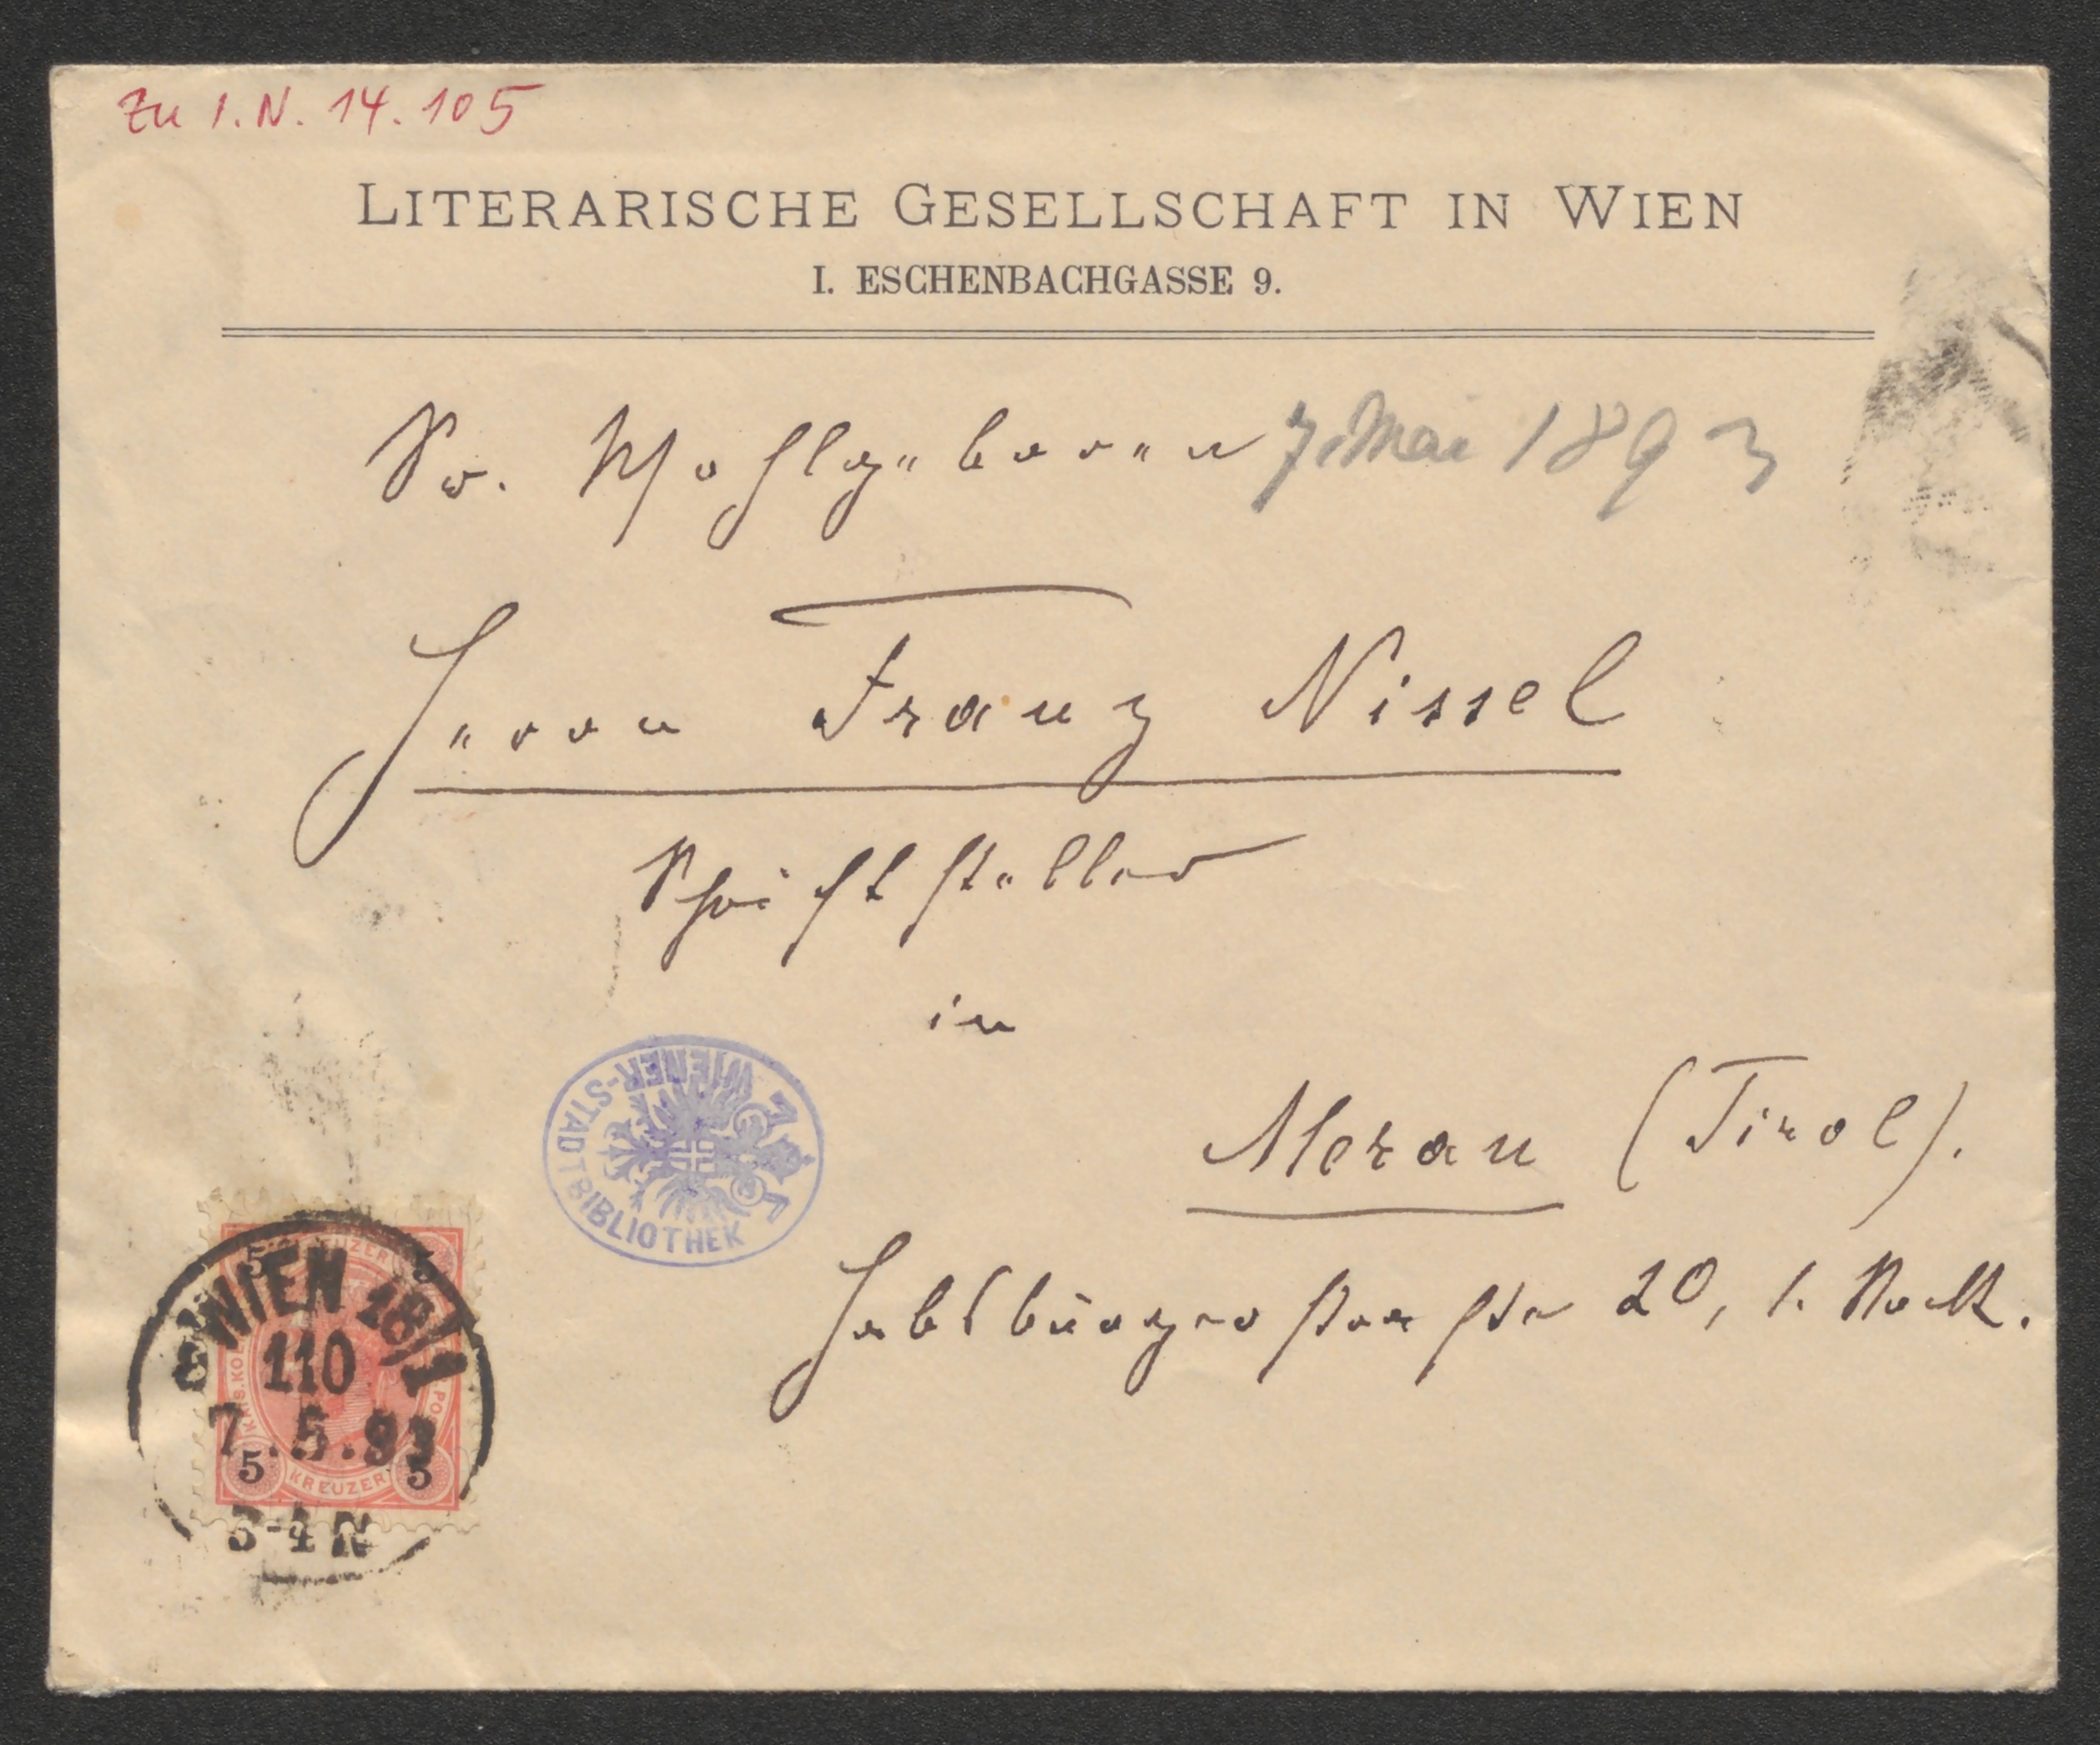 Zu I.N. 14.105
LITERARISCHE GESELLSCHAFT IN WIEN
I. ESCHENBACHGASSE 9.
Sr. Wohlgeboren 7. Mai 1893
Herrn Franz Nissel
Schriftsteller
in
WIENER-STADTBIBLIOTHEK
Meran (Tirol).
Habsburgerstraße 20, 1. Stock.
WIEN 18/1
110
7.5.93
3-4N
5 KREUZER 5